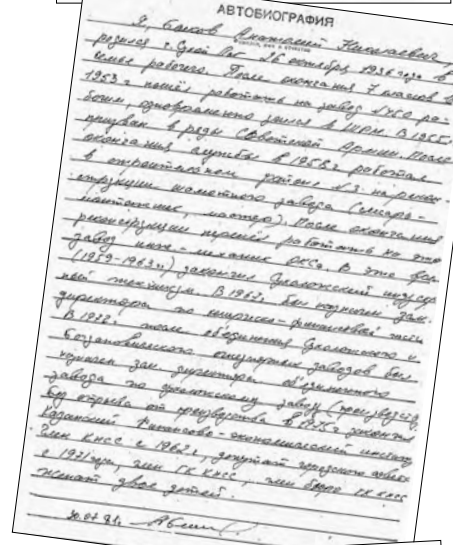 АВТОБИОГРАФИЯ
Я, Быков Анатолий Николаевич,
родился 26 октября 1936 года в
семье рабочего. После окончания 7 классов в
1953 г. пошёл работать на завод ра-
бочим, одновременно учился в ШРМ. В 1955 г.
призван в ряды Советской Армии. После
окончания службы в 1958 г. работал
в строительном районе №3 на рекон-
струкции шамотного завода (слесарь-
монтажник, мастер). После окончания
реконструкции перешёл работать на этот
завод инж.-механик ОКСа. В это время
(1959-1963 г.) закончил индустри
техникум. В 1962 г. был назначен зам.
директора по финансовой части
В 1972 г. после объединения и
Богдановичского огнеупорных заводов был
назначен зам. директора объединённого
завода по заводу
Без отрыва от производства в 1975 г. закончил
Казанский финансово-экономический институт
Член КПСС с 1962 г., депутат городского совета
с 1971 года, член ГК КПСС, член бюро ГК КПСС
женат двое детей.
30.07.81.